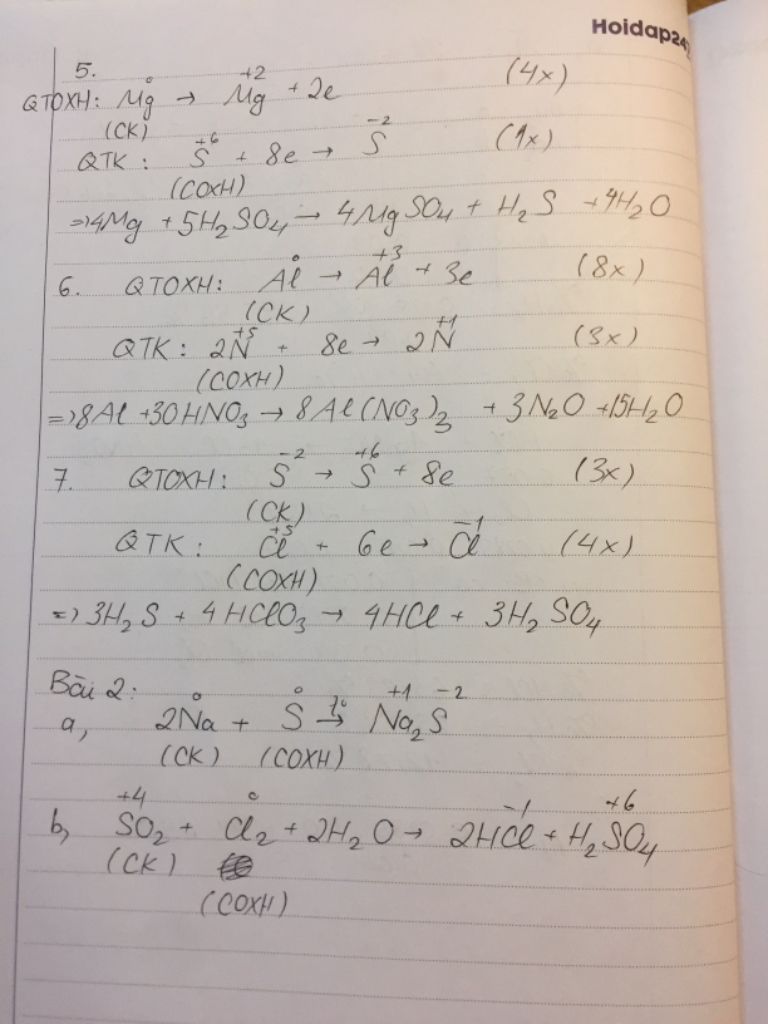 Hoidap247
5.
QTOXH: Mg⁰ → Mg⁺² + 2e (4x)
(CK)
QTK: S⁺⁶ + 8e → S⁻² (1x)
(COXH)
=> 4Mg + 5H₂SO₄ → 4MgSO₄ + H₂S + 4H₂O
6. QTOXH: Al⁰ → Al⁺³ + 3e (8x)
(CK)
QTK: 2N⁺⁵ + 8e → 2N⁺¹ (3x)
(COXH)
=> 8Al + 30HNO₃ → 8Al(NO₃)₃ + 3N₂O + 15H₂O
7. QTOXH: S⁻² → S⁺⁶ + 8e (3x)
(CK)
QTK: Cl⁺⁵ + 6e → Cl⁻¹ (4x)
(COXH)
=> 3H₂S + 4HClO₃ → 4HCl + 3H₂SO₄
Bài 2:
0 0 +1 -2
a, 2Na + S →(t°) Na₂S
(CK) (COXH)
+4 0 -1 +6
b, SO₂ + Cl₂ + 2H₂O → 2HCl + H₂SO₄
(CK)
(COXH)